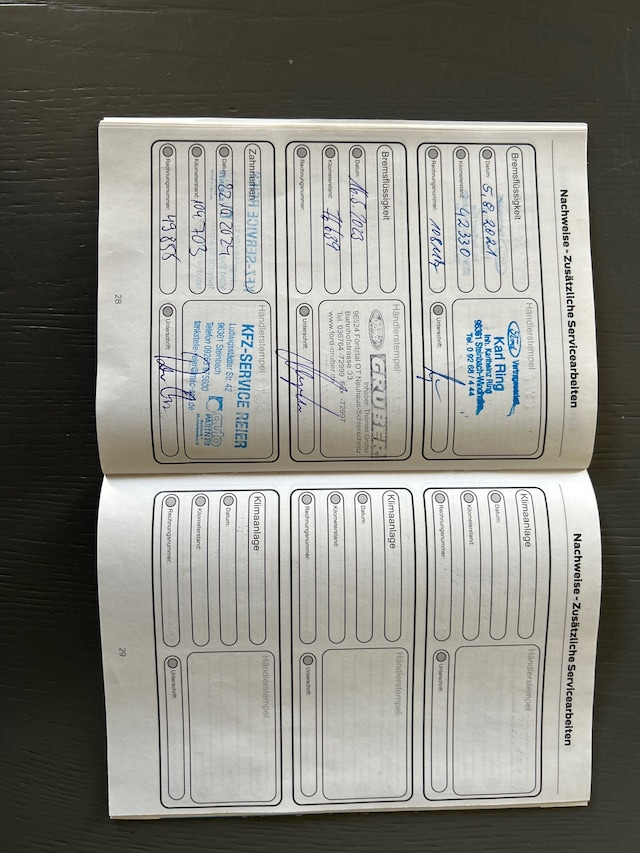 Nachweise - Zusätzliche Servicearbeiten
Bremsflüssigkeit
Datum: 5.8.2021
Kilometerstand: 42330
Rechnungsnummer:
Händlerstempel
Ford Vertragswerkstatt
Karl Ring
Inh. Karlheinz Ring
96361 Steinbach-Windheim
Tel. 0 92 68 / 4 44
Unterschrift:
Bremsflüssigkeit
Datum:
Kilometerstand:
Rechnungsnummer:
Händlerstempel
GRUBER
Inhaber: Thomas Gruber
96524 Föritztal OT Neuhaus-Schierschnitz
Bahnhofstrasse 33
Tel. 036764 -72999 Fax -72997
www.ford-gruber.de
Unterschrift:
Zahnriemen
Datum:
Kilometerstand: 104.703
Rechnungsnummer: 49855
Händlerstempel
KFZ-SERVICE REIER
Ludwigsstädter Str. 42
96361 Steinbach
Telefon
auto
PARTNER
Unterschrift:
28
Nachweise - Zusätzliche Servicearbeiten
Klimaanlage
Datum:
Kilometerstand:
Rechnungsnummer:
Händlerstempel
Unterschrift:
Klimaanlage
Datum:
Kilometerstand:
Rechnungsnummer:
Händlerstempel
Unterschrift:
Klimaanlage
Datum:
Kilometerstand:
Rechnungsnummer:
Händlerstempel
Unterschrift:
29